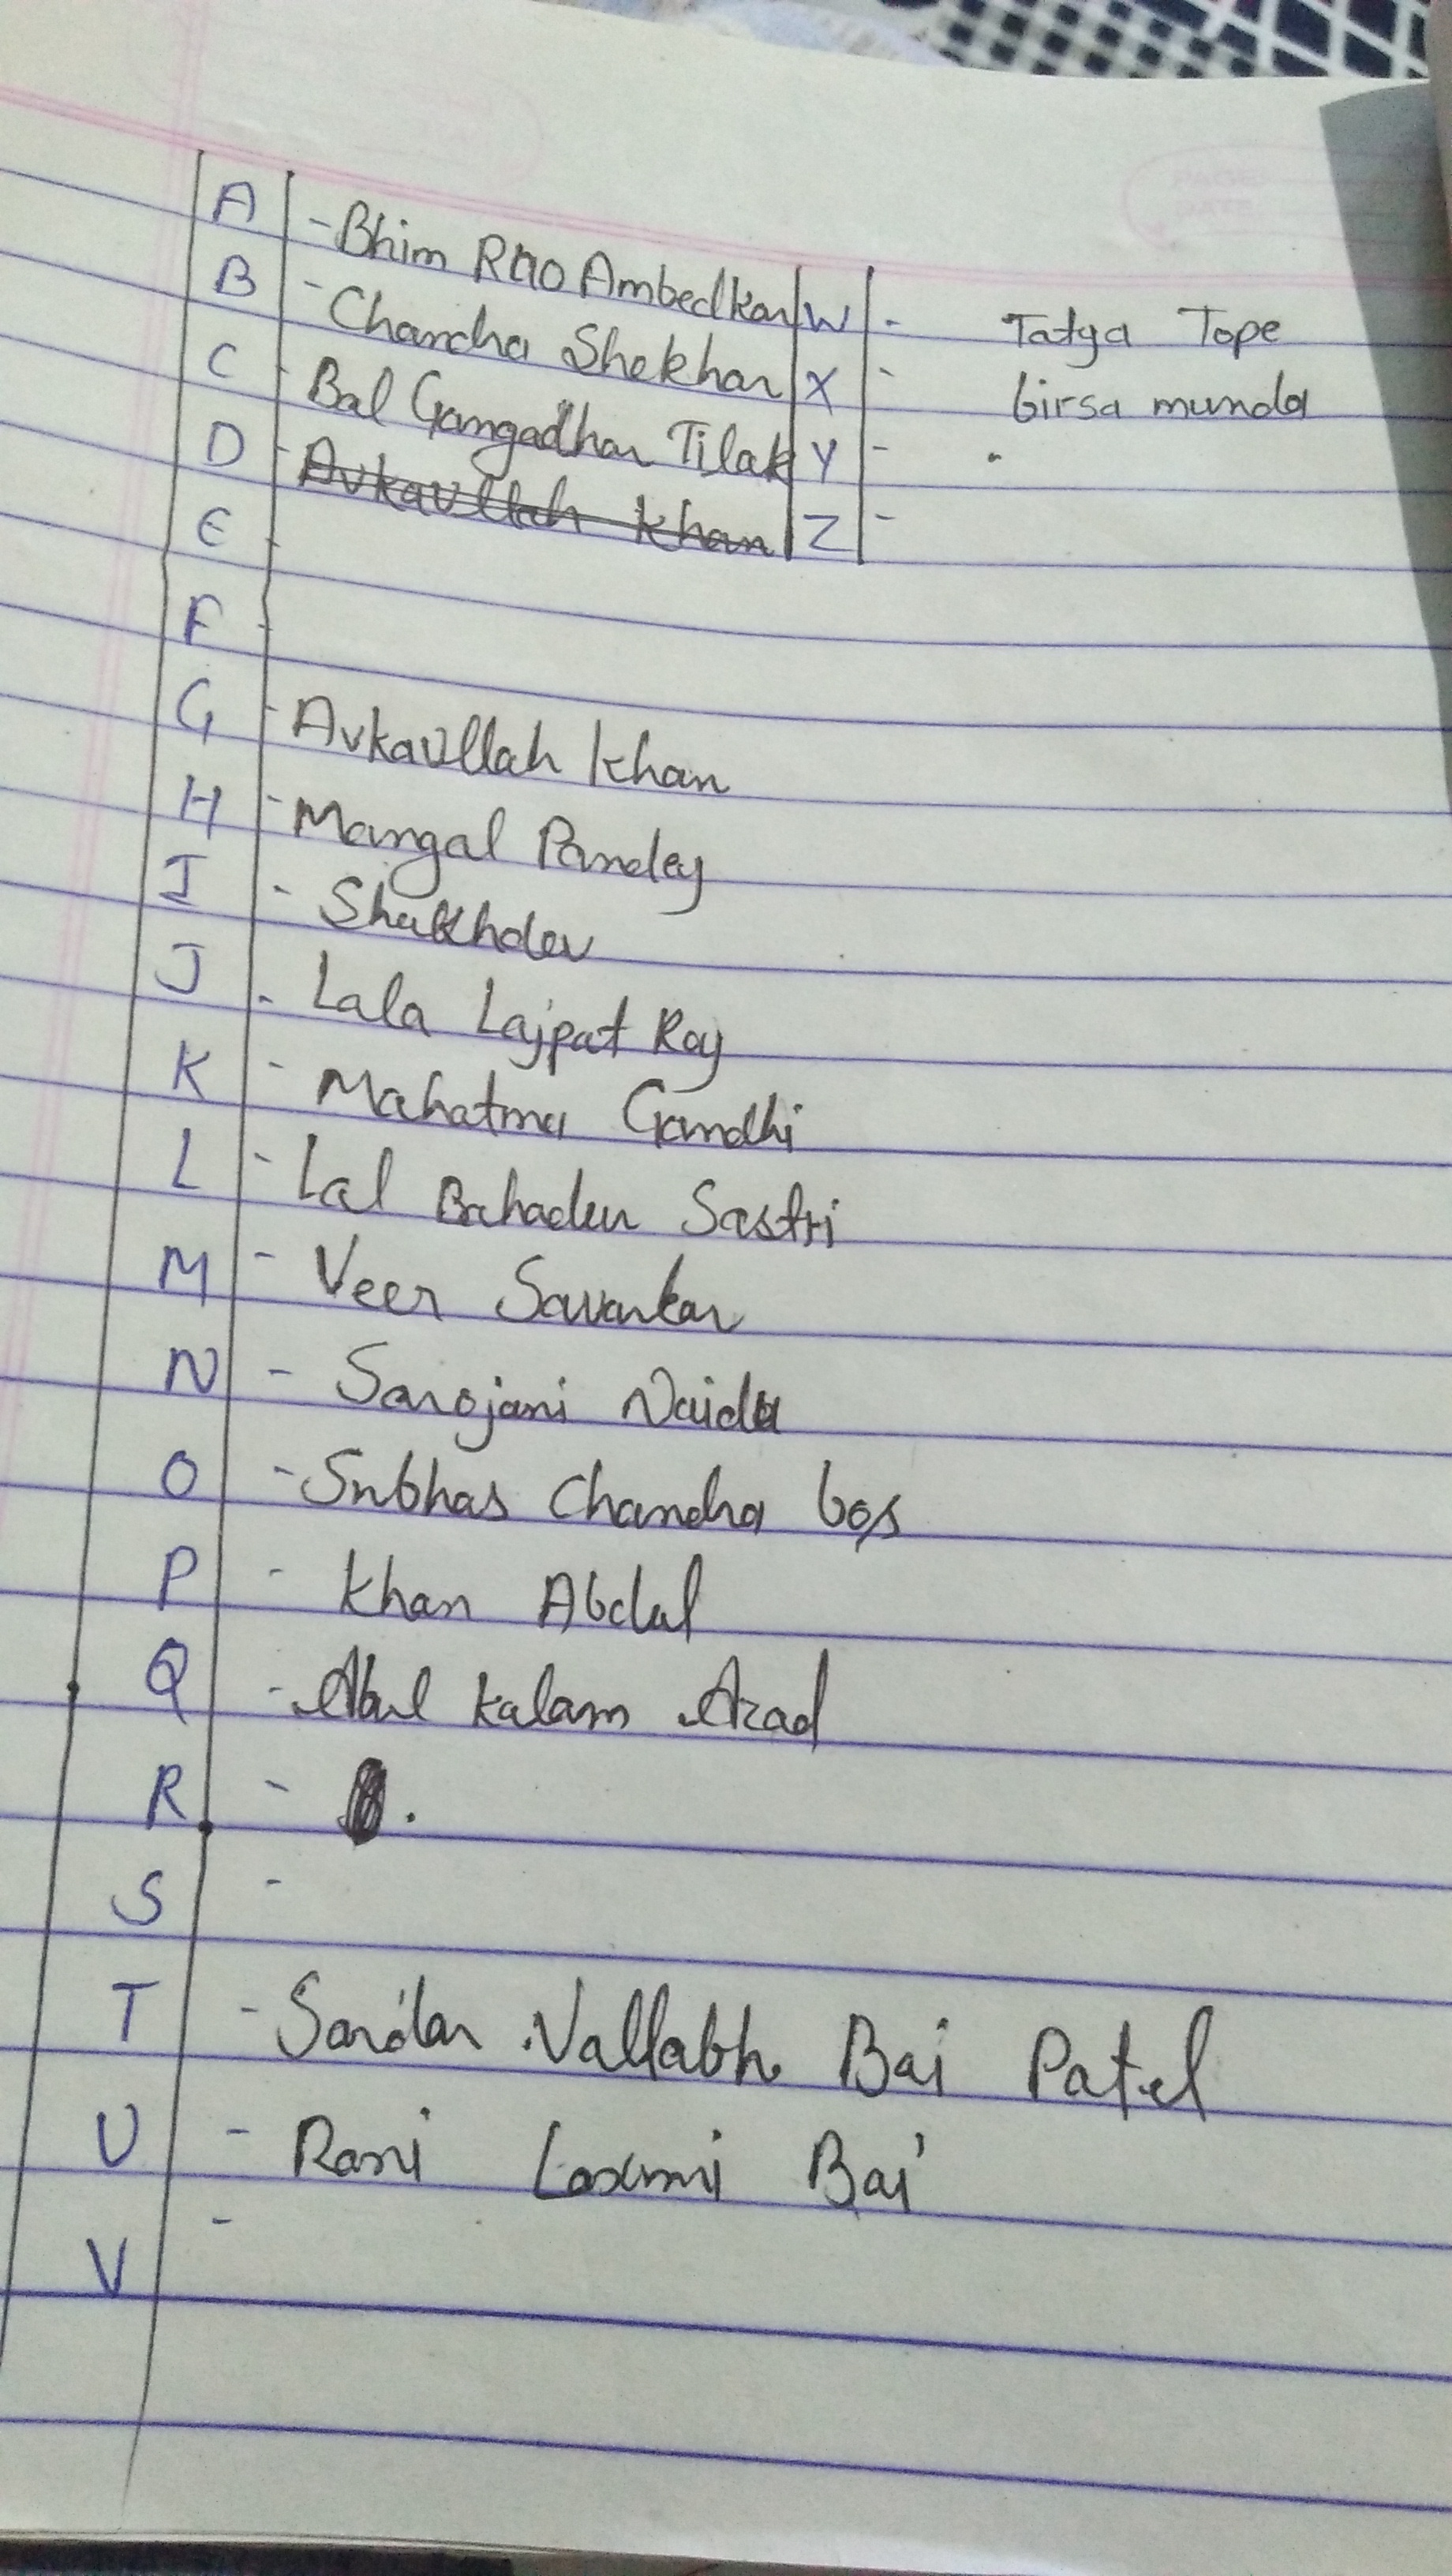 A - Bhim Rao Ambedkar
B - Chandra Shekhar
C - Bal Gangadhar Tilak
D - Avkaullah Khan
E -
F -
G - Avkaullah Khan
H - Mangal Pandey
I - Shukhdev
J - Lala Lajpat Ray
K - Mahatma Gandhi
L - Lal Bahadur Sastri
M - Veer Savarkar
N - Sarojani Naidu
O - Subhas Chandra bos
P - Khan Abdul
Q - Abul Kalam Azad
R - .
S -
T - Sardar Vallabh Bai Patel
U - Rani Laxmi Bai
V -
W - Tatya Tope
X - birsa munda
Y - .
Z -